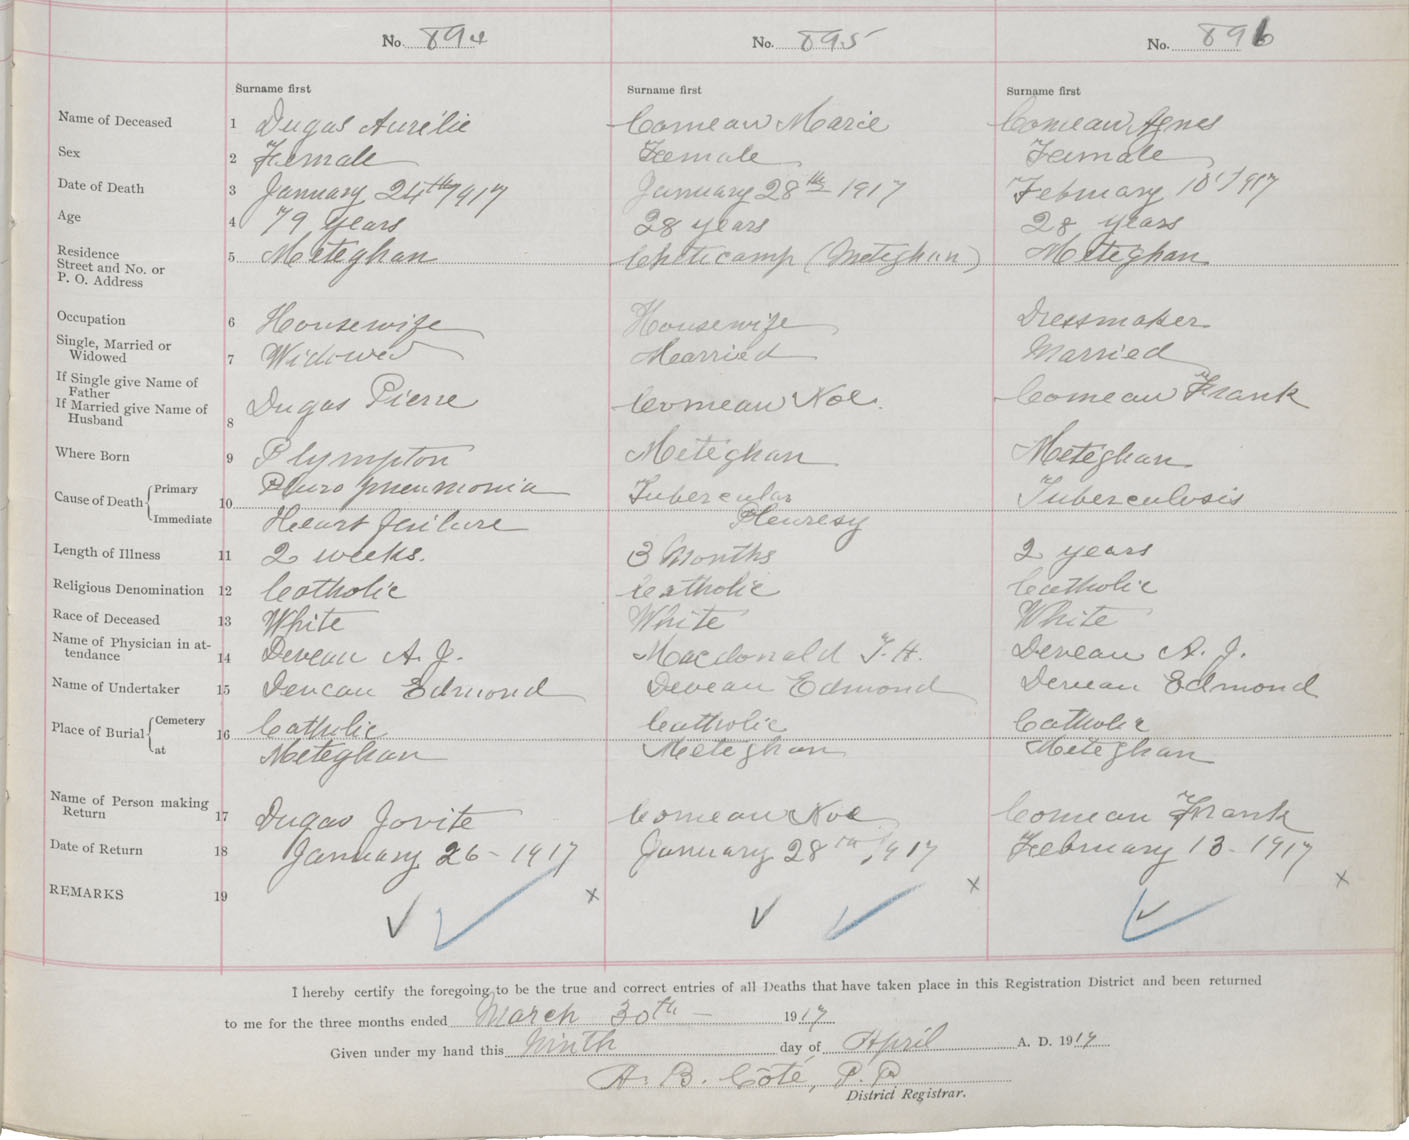 No. 894 No. 895 No. 896
Surname first Surname first Surname first
Name of Deceased 1 Dugas Aurélie Comeau Marie Comeau Agnes
Sex 2 Female Female Female
Date of Death 3 January 24th 1917 January 28th 1917 February 10 1917
Age 4 79 years 28 years 28 years
Residence
Street and No. or 5 Meteghan Cheticamp (Meteghan) Meteghan
P. O. Address
Occupation 6 Housewife Housewife Dressmaker
Single, Married or
Widowed 7 Widowed Married Married
If Single give Name of
Father
If Married give Name of Dugas Pierre Comeau Noe. Comeau Frank
Husband 8
Where Born 9 Plympton Meteghan Meteghan
Cause of Death Primary 10 Pluro pneumonia Tubercular Tuberculosis
Immediate Heart failure Pleuresy
Length of Illness 11 2 weeks. 3 Months 2 years
Religious Denomination 12 Catholic Catholic Catholic
Race of Deceased 13 White White White
Name of Physician in at-
tendance 14 Deveau A. J. Macdonald T. H. Deveau A. J.
Name of Undertaker 15 Deveau Edmond Deveau Edmond Deveau Edmond
Place of Burial Cemetery 16 Catholic Catholic Catholic
at Meteghan Meteghan Meteghan
Name of Person making
Return 17 Dugas Jovite Comeau Noe Comeau Frank
Date of Return 18 January 26 - 1917 January 28th 1917 February 13 - 1917
REMARKS 19
I hereby certify the foregoing to be the true and correct entries of all Deaths that have taken place in this Registration District and been returned
to me for the three months ended March 30th - 1917
Given under my hand this Ninth day of April A. D. 1917
A. B. Côté, P. P.
District Registrar.